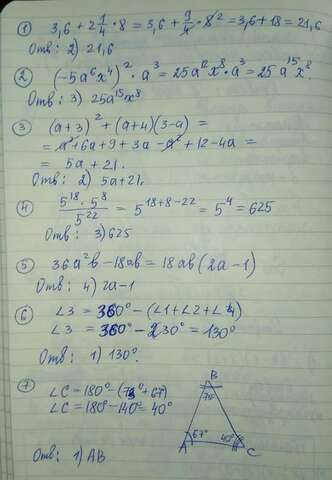 ① 3,6 + 2 1/4 * 8 = 3,6 + 9/4 * 8² = 3,6 + 18 = 21,6
Отв: 2) 21,6
② (-5a⁶x⁴)² · a³ = 25a¹²x⁸ · a³ = 25a¹⁵x⁸.
Отв: 3) 25a¹⁵x⁸
③ (a+3)² + (a+4)(3-a) =
= a² + 6a + 9 + 3a - a² + 12 - 4a =
= 5a + 21.
Отв: 2) 5a+21.
④ 5¹⁸ · 5⁸ / 5²² = 5¹⁸⁺⁸⁻²² = 5⁴ = 625
Отв: 3) 625
⑤ 36a²b - 18ab = 18ab(2a-1)
Отв: 4) 2a-1
⑥ ∠3 = 360° - (∠1+∠2+∠4)
∠3 = 360° - 230° = 130°
Отв: 1) 130°.
⑦ ∠C = 180° - (73°+67)
∠C = 180° - 140° = 40°
Отв: 1) AB
B
67°
40°
A
C